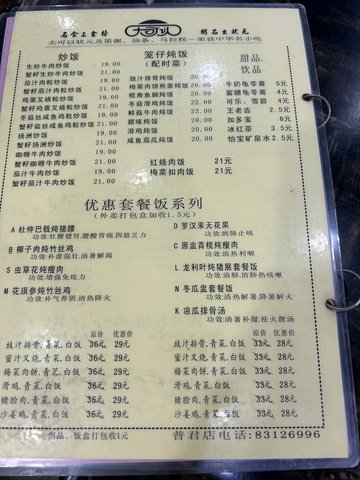 名食上食榜 大可以 粥品出状元
大可以状元及第粥、油条、马拉糕一荣获中华名小吃
炒饭
生炒牛肉炒饭 19.00
蟹籽生炒牛肉炒饭 21.00
茄汁肉粒炒饭 19.00
蟹籽茄汁肉粒炒饭 21.00
鸡蛋叉烧粒炒饭 19.00
蟹籽鸡蛋叉烧粒炒饭 21.00
冬菇丝咸鱼鸡粒炒饭 19.00
蟹籽丝咸鱼鸡粒炒饭 21.00
扬洲炒饭 19.00
蟹籽扬洲炒饭 21.00
咖喱牛肉炒饭 19.00
蟹籽咖喱牛肉炒饭 21.00
茄汁牛肉炒饭 19.00
蟹籽茄汁牛肉炒饭 21.00
笼仔炖饭
(配时菜)
豉汁排骨炖饭 18.00
梅菜肉饼煎蛋炖饭
榄角鱼腩炖饭
冬菇滑鸡炖饭
鲜菇牛肉炖饭
腊味炖饭
滑鸡炖饭
咸鱼茄瓜炖饭
红烧肉饭 21元
梅菜扣肉饭 21元
甜品、
饮品
牛奶龟苓膏 5元
蜜糖龟苓膏 4元
可乐、雪碧 4元
王老吉 5元
加多宝 6元
冰红茶 3.5元
怡宝矿泉水 2.5元
优惠套餐饭系列
(外卖打包盒加收1.5元)
A 杜仲巴戟炖猪腰
功效:壮腰健肾,腰酸背痛,四肢乏力
B 椰子肉炖竹丝鸡
功效:补虚强壮,益气祛风
S 虫草花炖瘦肉
功效:增强免疫力
M 花旗参炖竹丝鸡
功效:补气养阴,清热降火
D 罗汉果无花果
功效:润肺止咳
C 原盅青榄炖瘦肉
功效:清热利咽
L 龙利叶炖猪展套餐饭
功效:清肺,治肺热咳嗽
N 冬瓜盅套餐饭
功效:清热解暑,降暑解火
K 凉瓜排骨汤
功效:清暑补湿,祛火靓汤
原价 优惠价
豉汁排骨,青菜,白饭 36元 29元
蜜汁叉烧,青菜,白饭 36元 29元
梅菜肉饼,青菜,白饭 36元 29元
滑鸡,青菜,白饭 36元 29元
猪脸肉,青菜,白饭 36元 29元
沙姜鸡,青菜,白饭 36元 29元
原价 优惠价
豉汁排骨,青菜,白饭 33元 28元
蜜汁叉烧,青菜,白饭 33元 28元
梅菜肉饼,青菜,白饭 33元 28元
滑鸡,青菜,白饭 33元 28元
猪脸肉,青菜,白饭 33元 28元
沙姜鸡,青菜,白饭 33元 28元
粥品、饭盒打包收1元
晋君店电话:83126996